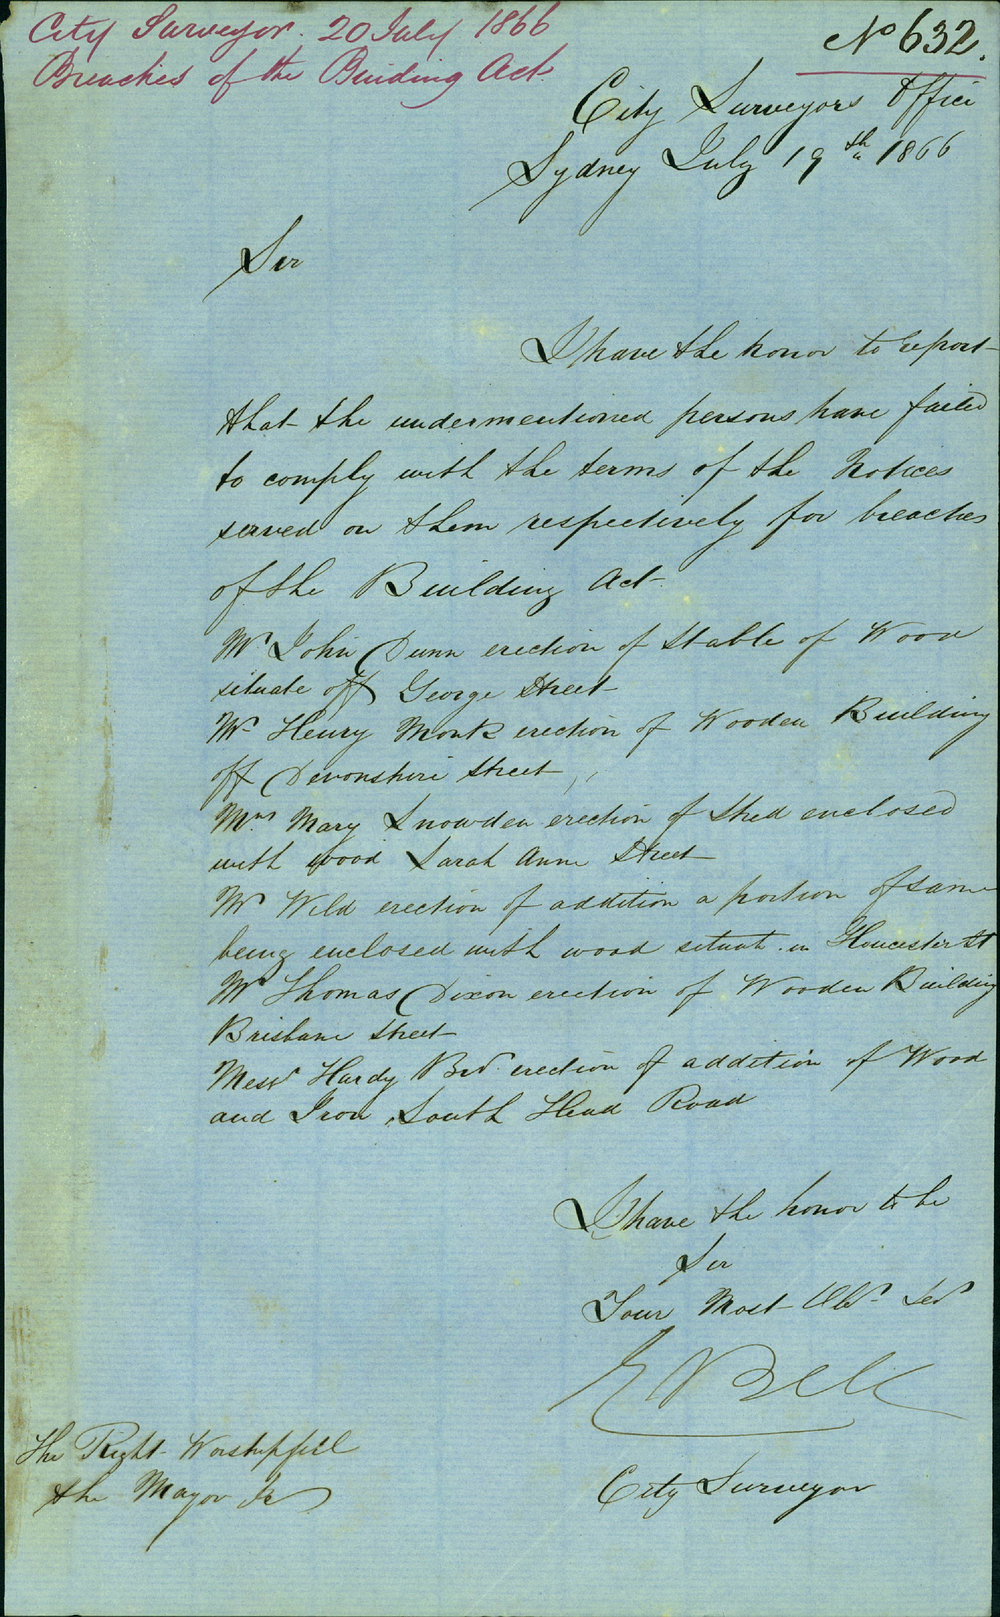 City Surveyor. 20 July 1866
Breaches of the Building Act
No 632.
City Surveyors Office
Sydney July 19th 1866
Sir
I have the honor to report
that the undermentioned persons have failed
to comply with the terms of the Notices
served on them respectively for breaches
of the Building Act
Mr John Dunn erection of Stable of Wood
situate off George Street
Mr Henry Monk erection of Wooden Building
off Devonshire Street
Mrs Mary Snowden erection of Shed enclosed
with wood Sarah Anne Street
Mr Wild erection of addition a portion of same
being enclosed with wood situate in Gloucester St
Mr Thomas Dixon erection of Wooden Building
Brisbane Street
Messrs Hardy Bros. erection of addition of Wood
and Iron, South Head Road
I have the honor to be
Sir
Your Most Obt. Ser
E Bell
City Surveyor
The Right Worshipful
the Mayor &c